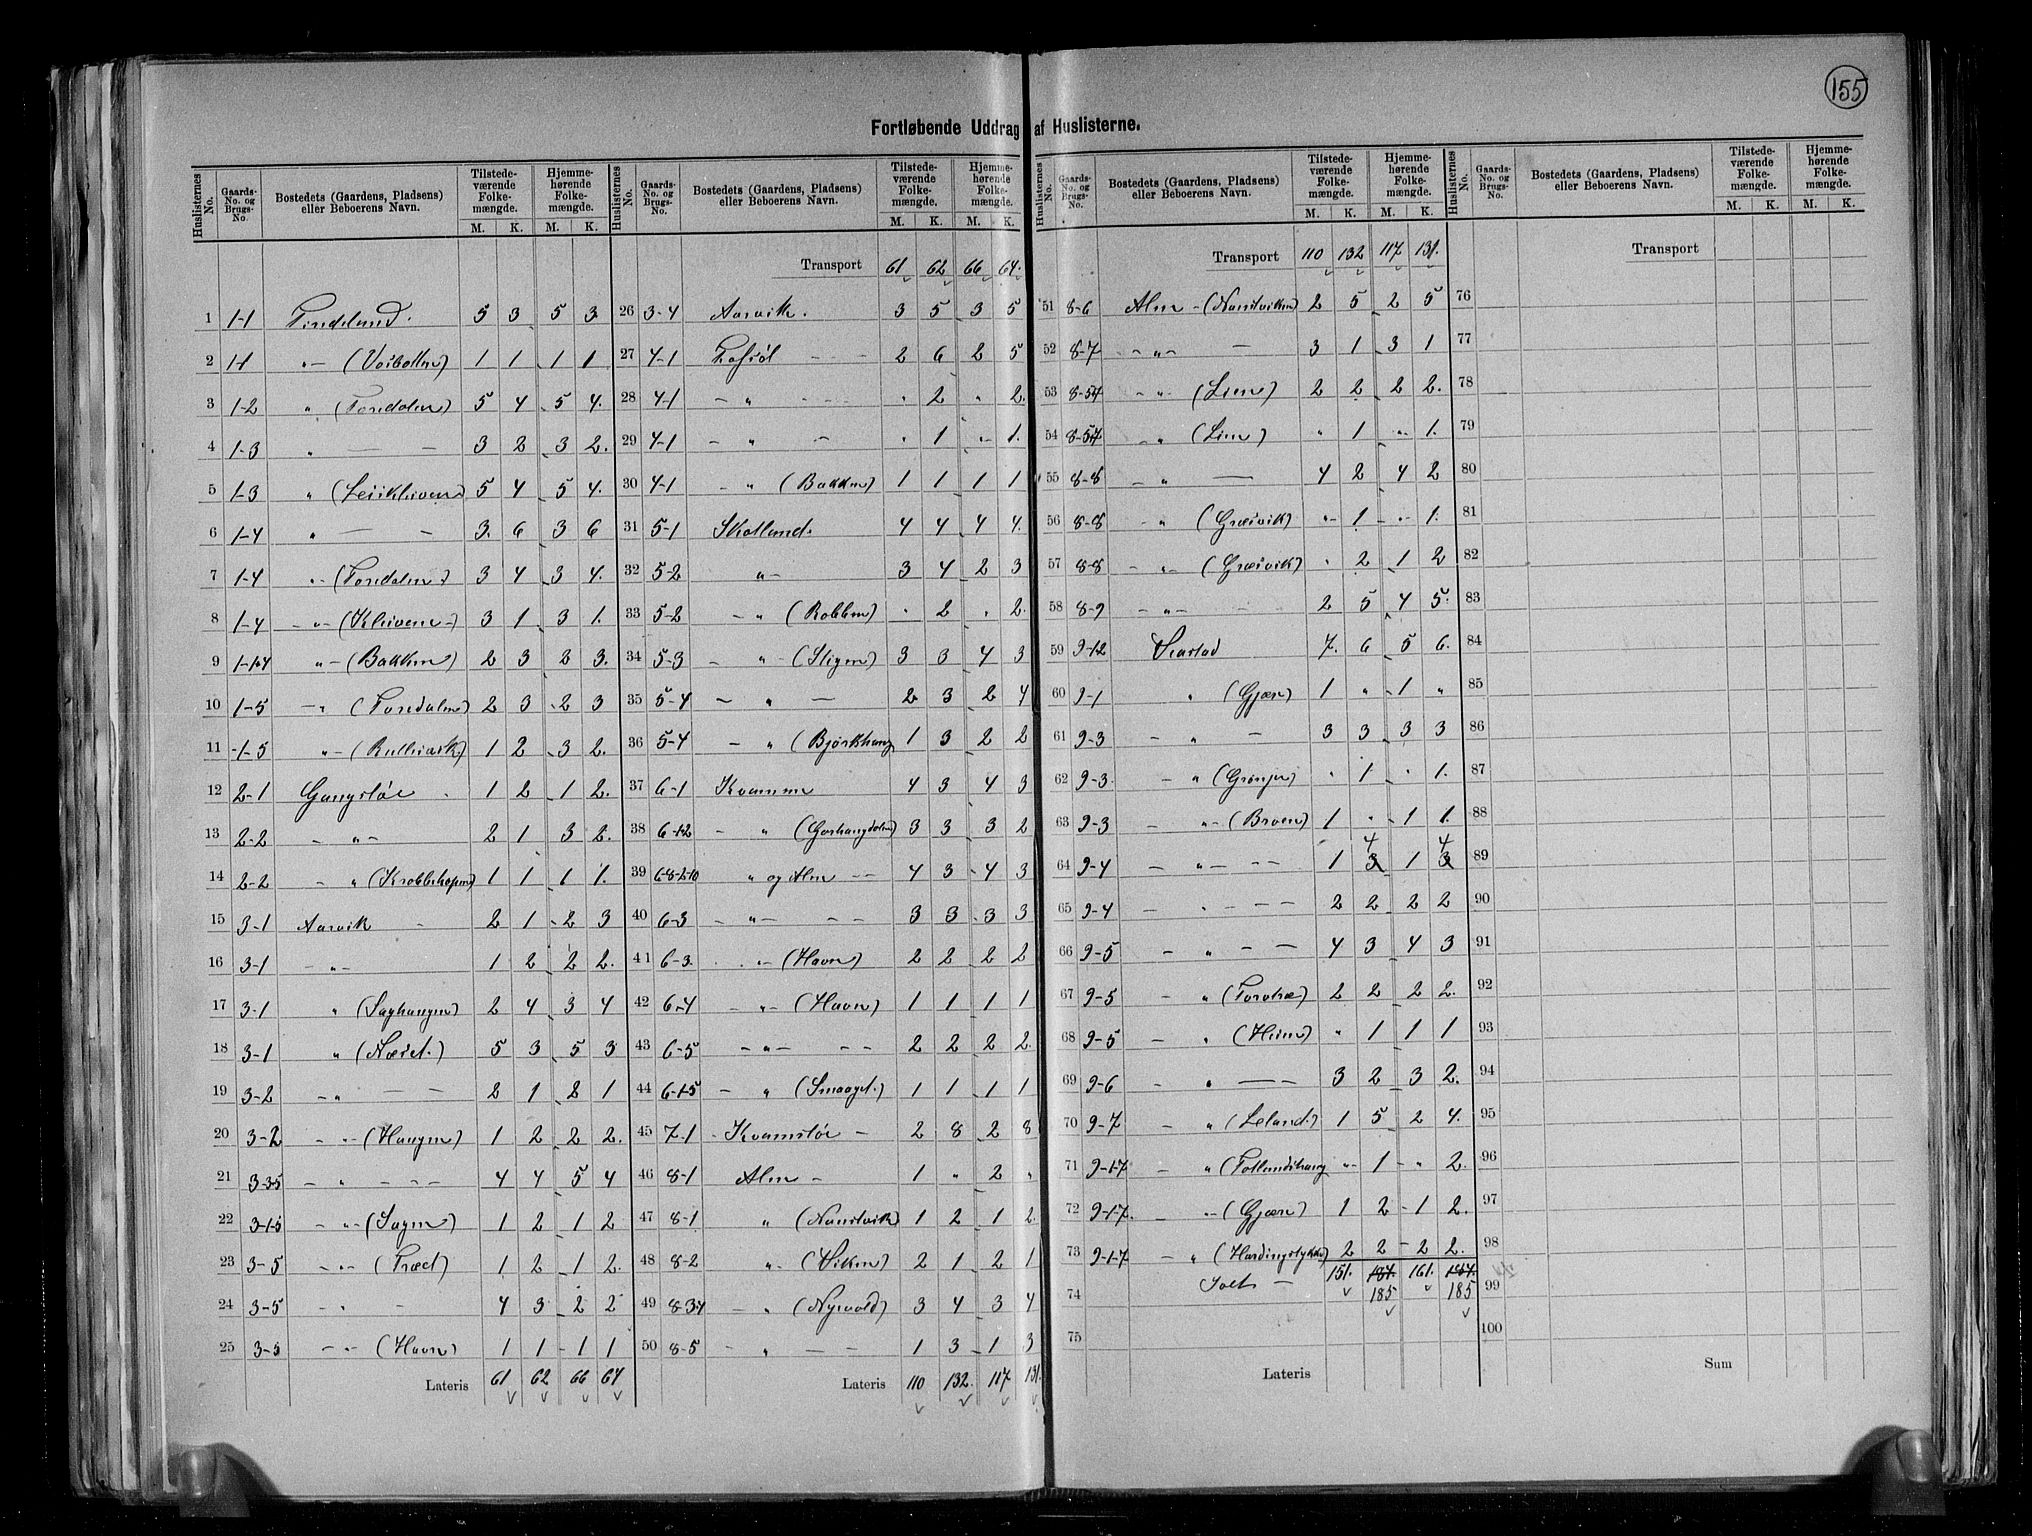 155
Fortløbende Uddrag af Huslisterne.
Huslisternes No. Gaards-No. og Brugs-No. Bostedets (Gaardens, Pladsens) eller Beboerens Navn. Tilstedeværende Folkemængde. M. K. Hjemmehørende Folkemængde. M. K.
1 1-1 5 3 5 3
2 1-1 " 1 1 1 1
3 1-2 " 5 4 5 4.
4 1-3 " — — 3 2 3 2.
5 1-3 " 5 4 5 4.
6 1-4 " — — 3. 6 3 6
7 1-4 " 3 4 3 4.
8 1-4 " 3 1 3 1.
9 1-1-4 " (Bakken) 2 3 2 3.
10 1-5 " 2 3 2 3
11 1-5 " 1 2 3 2.
12 2-1 Gangstøe 1 2 1 2.
13 2-2 " 2 1 3 2.
14 2-2 " 1 1 1 1.
15 3-1 Aarvik 2 1 2 3
16 3-1 " 1 2 2 2.
17 3-1 " (Saghaugen) 2 4 3 4
18 3-1 " (Næset.) 5 3 5 3
19 3-2 " — — 2 1 2 1
20 3-2 " (Haugen) 1 2 2 2.
21 3-3-5 " 4 4 5 4
22 3-1-5 " (Sagen) 1 2 1 2
23 3-5 " (Træet) 1 2 1 2.
24 3-5 " 4 3 2 2
25 3-5 " (Havn) 1 1 1 1
Lateris 61 62 66 64
Transport 61 62 66 64.
26 3-4 Aarvik. 3 5 3 5
27 4-1 2 6 2 5
28 4-1 " " 2 " 2.
29 4-1 " " 1 " 1.
30 4-1 " (Bakken) 1 1 1 1
31 5-1 Skotland. 4 4 4 4.
32 5-2 " 3 4 2 3
33 5-2 " (Robben) " 2 " 2.
34 5-3 " (Stigen) 3 3 4 3
35 5-4 " — 2 3 2 4
36 5-4 " (Bjørkhaug 1 3 2 2
37 6-1 Kvamme 4 3 4 3
38 6-1-2 " 3 3 3 2
39 6-8-2-10 " og Alm 4 3 4 3
40 6-3 " 3 3 3 3
41 6-3. " (Havn) 2 2 2 2
42 6-4 " (Havn) 1 1 1 1
43 6-5 " 2 2 2 2.
44 6-1-5 " (Smaaget.) 1 1 1 1
45 7-1 Kvamstøe 2 8 2 8
46 8-1 Alm 1 " 2 "
47 8-1 " 1 2 1 2.
48 8-2 " (Viken) 2 1 2 1
49 8-3-4 " (Nyvold) 3 4 3 4
50 8-5 " 1 3 1 3
Lateris 110 132. 117 131.
Transport 110 132 117 131.
51 8-6 Alm 2 5 2 5
52 8-7 " — 3 1 3 1
53 8-5-7 " (Lien) 2 2 2 2.
54 8-5-7 " (Lien) " 1 " 1.
55 8-8 " — 4 2 4 2
56 8-8 " (Græivik) " 1 " 1.
57 8-8 " (Græivik) " 2 1 2
58 8-9 " 2 5 4 5.
59 9-1-2 7. 6 5 6.
60 9-1 " (Gjæren) 1 " 1 "
61 9-3 " — 3 3 3 3
62 9-3. " " 1 " 1.
63 9-3 " (Broen) 1 " 1 1.
64 9-4 " 1 4 1 4
65 9-4 " 2 2 2 2
66 9-5 " 4 3 4 3
67 9-5 " 2 2 2 2.
68 9-5 " (Heim) " 1 1 1
69 9-6 " — 3 2 3 2.
70 9-7 " (Leland.) 1 5 2 4.
71 9-1-7 " " 1 " 2.
72 9-1-7. " (Gjæren) 1 2 1 2.
73 9-1-7 " (Hardingstykke) 2 2 2 2.
74 151. 187. 161. 187.
185 185
75
Lateris
Transport
76
77
78
79
80
81
82
83
84
85
86
87
88
89
90
91
92
93
94
95
96
97
98
99
100
Sum